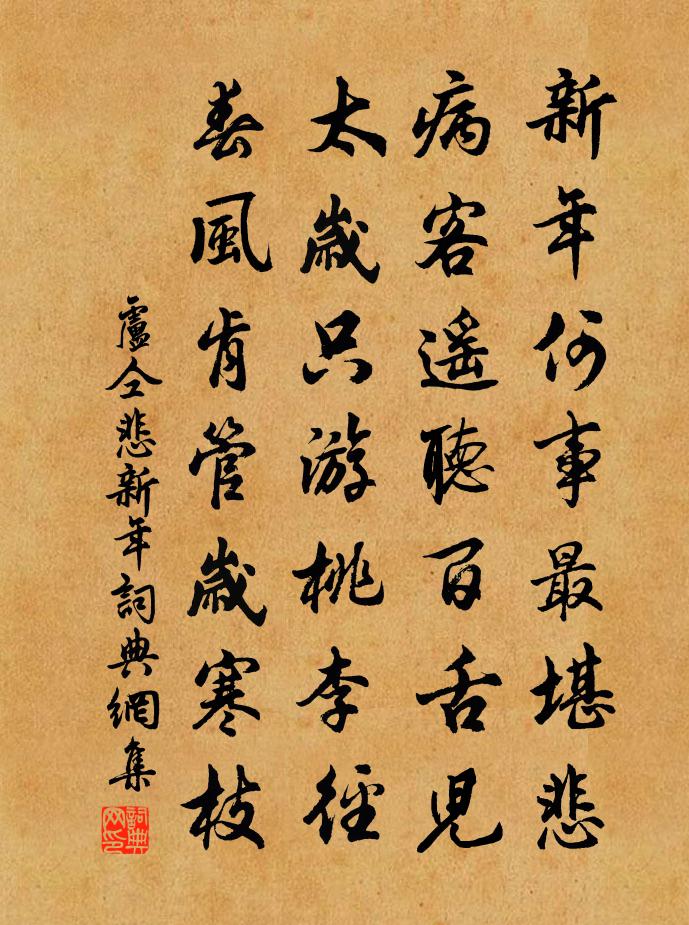 新年何事最堪悲
病客遥聽百舌児
太歲只游桃李徑
春風肯管歲寒枝
盧仝悲新年詞典網集
詞典
网印